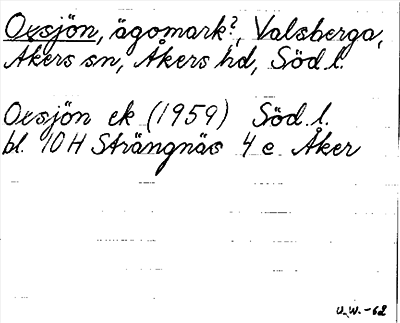 Oxsjön, ägomark?, Valsberga,
Åkers sn, Åkers hd, Söd. l.
Oxsjön ek (1959) Söd. l.
bl. 10H Strängnäs 4 e Åker
U.W.-62